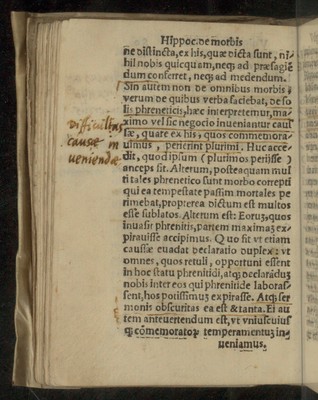 Hippoc. de morbis
ne distincta, ex his, quæ dicta sunt, ni-
hil nobis quicquam, neq; ad præsagiē
dum conferret, neq; ad medendum.
Sin autem non de omnibus morbis,
verum de quibus verba faciebat, de so
lis phreneticis, hæc interpretemur, ma
ximo vel sic negocio inueniantur cauſ
ſæ, quare ex his, quos commemora-
uimus, perierint plurimi. Huc acce-
dit, quod ipsum (plurimos perisse)
anceps sit. Alterum, posteaquam mul
ti tales phrenetico sunt morbo correpti
qui ea tempestate passim mortales pe
rimebat, propterea dictum est multos
esse sublatos. Alterum est: Eorūʒ, quos
inuasit phrenitis, partem maximaʒ ex-
pirauisse accipimus. Quo fit vt etiam
caussæ euadat declaratio duplex: vt
omnes, quos retuli, opportuni essent
in hoc statu phrenitidi, atq; declaraduʒ
nobis inter eos qui phrenitide laboraſ-
sent, hos potissimuʒ expirasse. Atq; ser
monis obscuritas ea est & tanta. Ei au
tem anteuertendum est, vt vniuscuius
q; cōmemorator̄ temperamentuʒ in-
ueniamus.
Difficultas
causæ in
ueniendæ